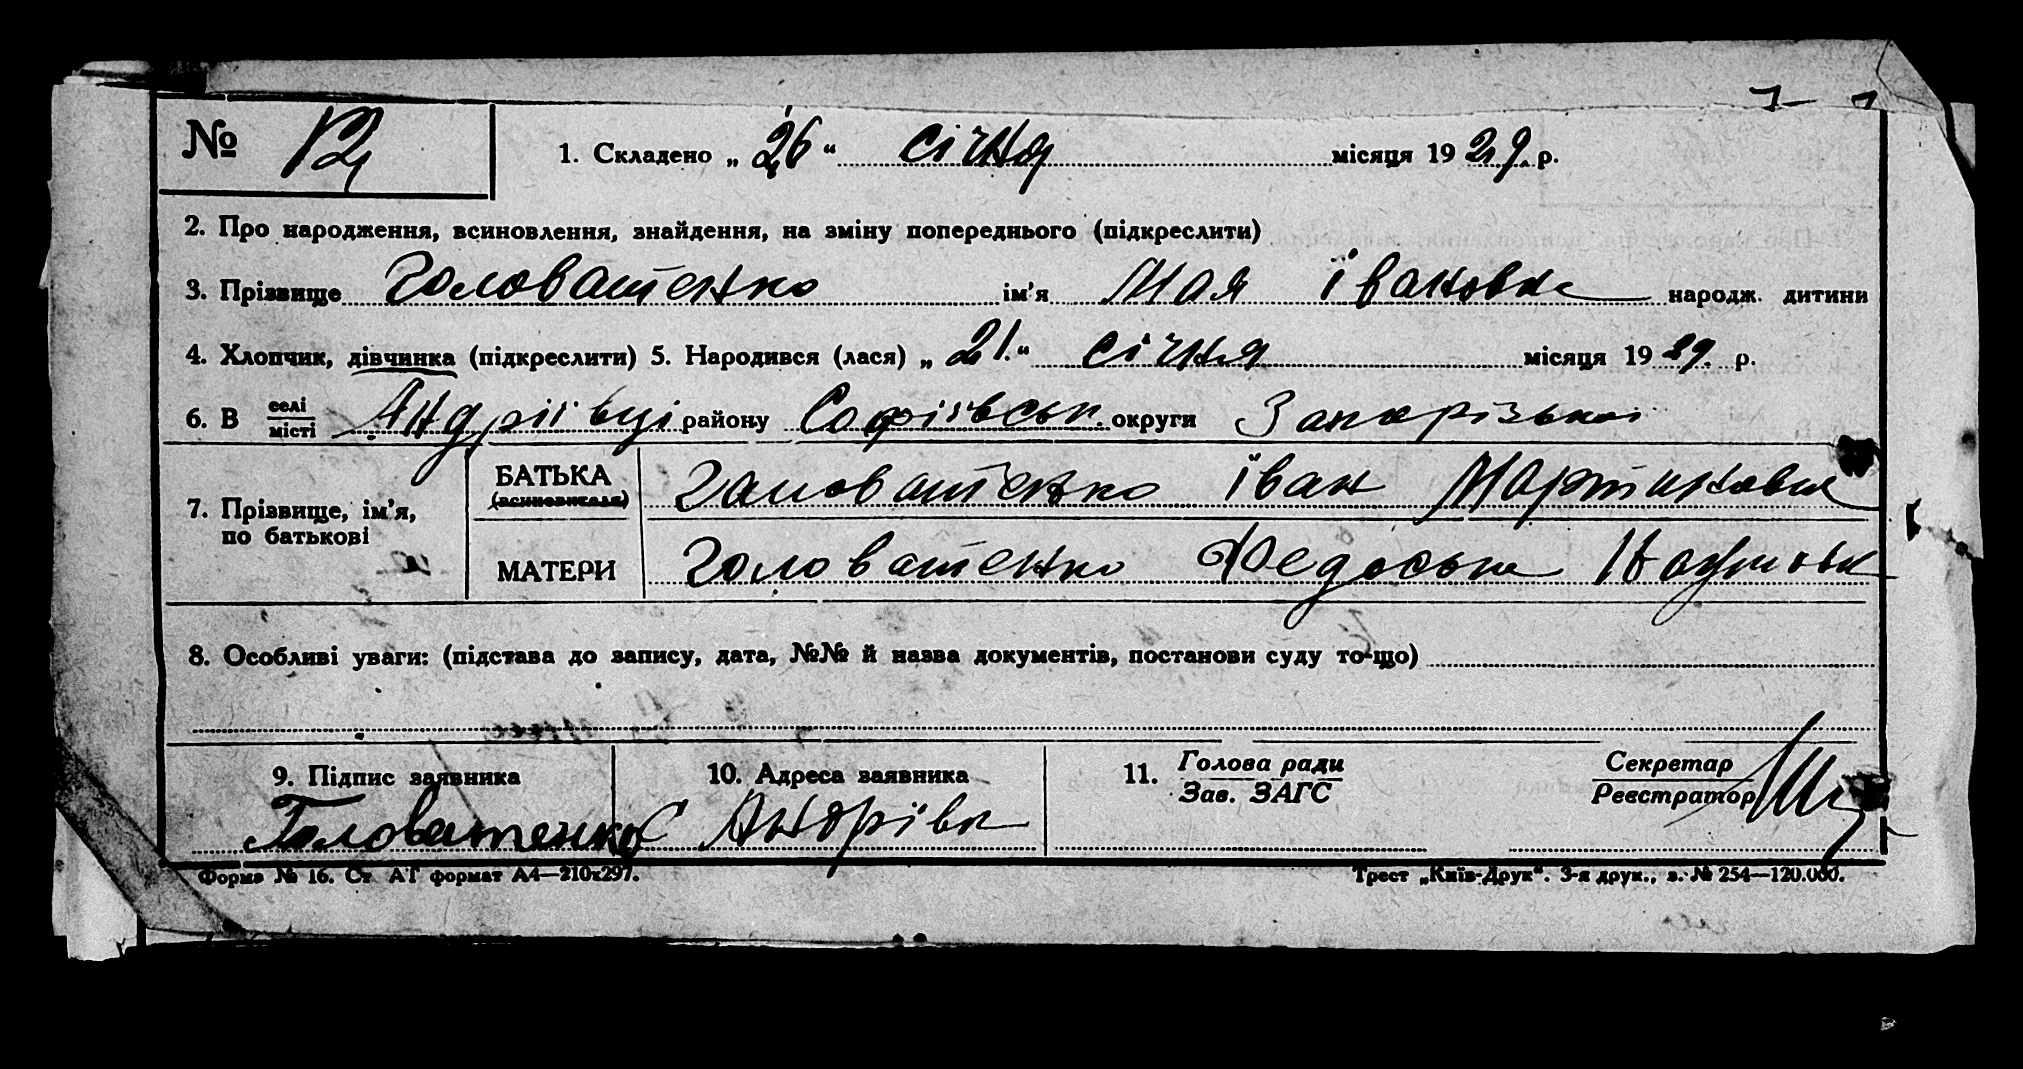 № 12
1. Складено „ 26 “ січня місяця 19 29. р.
2. Про народження, всиновлення, знайдення, на зміну попереднього (підкреслити)
3. Прізвище Головатенко ім’я Мая Івановна народж. дитини
4. Хлопчик, дівчинка (підкреслити) 5. Народився (лася) „ 21. “ січня місяця 19 29. р.
6. В селі місті Андріївці району Софіївськ. округи Запорізької
7. Прізвище, ім’я, по батькові
БАТЬКА (всиновителя) Головатенко Іван Мартинович
МАТЕРИ Головатенко Федоська
8. Особливі уваги: (підстава до запису, дата, №№ й назва документів, постанови суду то-що)
9. Підпис заявника 10. Адреса заявника 11. Голова ради Зав. ЗАГС Секретар Реєстратор
Головатенко С Андрівк
Форма № 16. Ст. АТ формат А4—210х297. Трест „Київ-Друк“. 3-я друк., з. № 254—120.000.